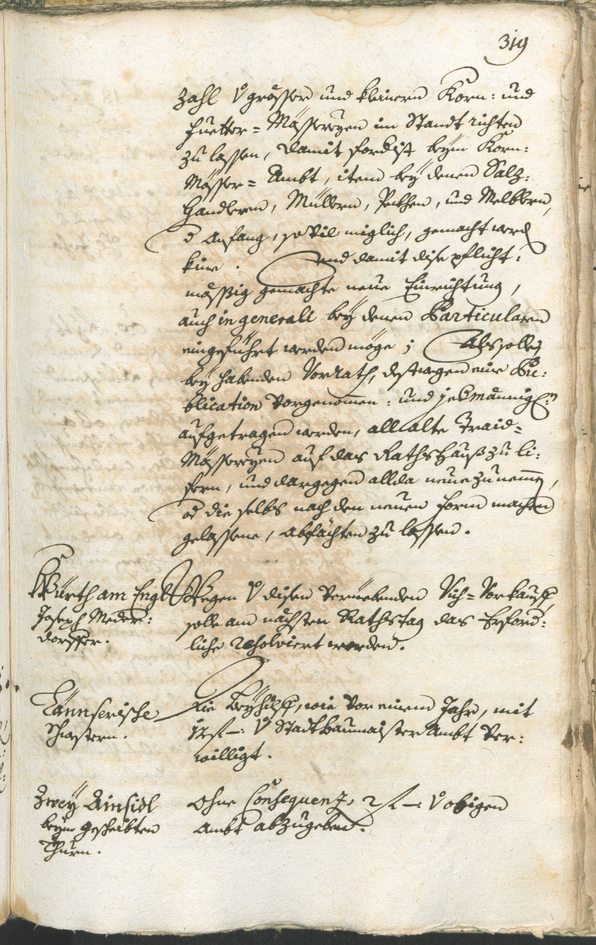 319
Zahl V grösser und kleinern Korn: und
Fuetter-Mässereyen im Standt richten
zu lassen, damit fordist beym Korn:
Mösser-Ambt, item bey denen Salz:
Handleren, Müllern, Pekhen, und Melblern,
d Anfang, so vil miglich, gemacht werd
küne. und damit dise pflicht:
mässig gemachte neue Einrichtung,
auch in generali bey denen Particularn
eingeführt werden möge; Als solle
bey habenden Vorrath, deswegen eine Pu:
blication vorgenomen: und jedmännigl
aufgetragen werden, all alte Traid-
Mässereyen auf das Rathshauß zu li:
fern, und dargegen allda neue zu nemen,
od die selbs nach den neuen Form machen
gelassene, abfächten zu lassen.
Würth am Engl
Joseph Meder:
dorffer.
Wegen V disen veruebenden Vich-Vorkauf,
solle am nächsten Rathstag das Erford:
liche resolviert werden.
Tännserische
Schwestern.
Die Beyhilf, wie vor einem Jahr, mit
V Stadtbaumaister Ambt ver:
willigt.
Zwey Ainsidl
beym gescheibten
Thurn.
Ohne Consequenz, 2 f – V obigen
Ambt abzugeben.